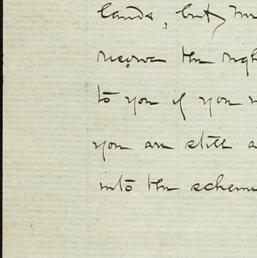 lands, but
reserve the righ
to you if you
you are still a
into the scheme